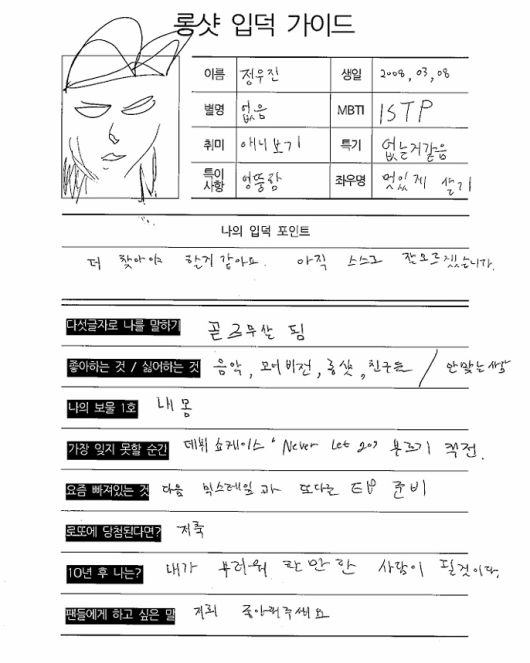 롱샷 입덕 가이드
이름 정우진 생일 2008, 03, 08
별명 없음 MBTI ISTP
취미 애니보기 특기 없는거같음
특이사항 엉뚱함 좌우명 멋있게 살기
나의 입덕 포인트
더 찾아야 할거 같아요. 아직 스스로 잘모르겠습니다.
다섯글자로 나를 말하기 곧 고무산 됨
좋아하는 것 / 싫어하는 것 음악, 모어비전, 롱샷, 친구들 / 안맞는사람
나의 보물 1호 내 몸
가장 잊지 못할 순간 데뷔 쇼케이스 'Never let go' 부르기 직전.
요즘 빠져있는 것 다음 믹스테잎 과 또다른 EP 준비
로또에 당첨된다면? 저축
10년 후 나는? 내가 부러워 할만한 사람이 될것이다.
팬들에게 하고 싶은 말 저희 좋아해주세요